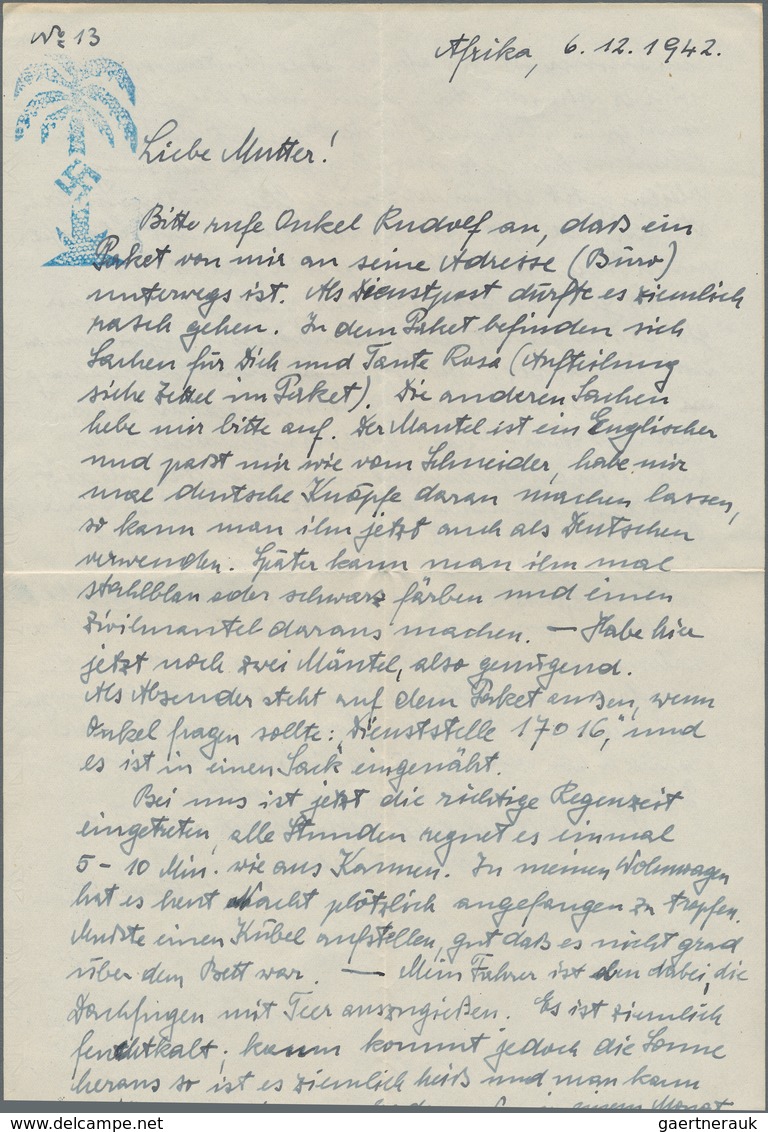 No 13
Afrika, 6.12.1942.
Liebe Mutter!
Bitte rufe Onkel Rudolf an, daß ein
Paket von mir an seine Adresse (Büro)
unterwegs ist. Als Dienstpost dürfte es ziemlich
rasch gehen. In dem Paket befinden sich
Sachen für Dich und Tante Rosa (Aufteilung
siehe Zettel im Paket). Die anderen Sachen
hebe mir bitte auf. Der Mantel ist ein Englischer
und paßt mir wie vom Schneider, habe mir
mal deutsche Knöpfe daran machen lassen,
so kann man ihn jetzt auch als Deutschen
verwenden. Später kann man ihn mal
stahlblau oder schwarz färben und einen
Zivilmantel daraus machen. — Habe hier
jetzt noch zwei Mäntel, also genügend.
Als Absender steht auf dem Paket außen, wenn
Onkel fragen sollte: "Dienststelle 17016," und
es ist in einen Sack eingenäht.
Bei uns ist jetzt die richtige Regenzeit
eingetreten, alle Stunden regnet es einmal
5-10 Min. wie aus Kannen. In meinen Wohnwagen
hat es heut Nacht plötzlich angefangen zu tropfen.
Mußte einen Kübel aufstellen, gut daß es nicht grad
über dem Bett war. — Mein Fahrer ist eben dabei, die
Dachfugen mit Teer auszugießen. Es ist ziemlich
feuchtkalt; kaum kommt jedoch die Sonne
heraus so ist es ziemlich heiß und man kann
einem Monat
gaertnerauk
www.delcampe.net